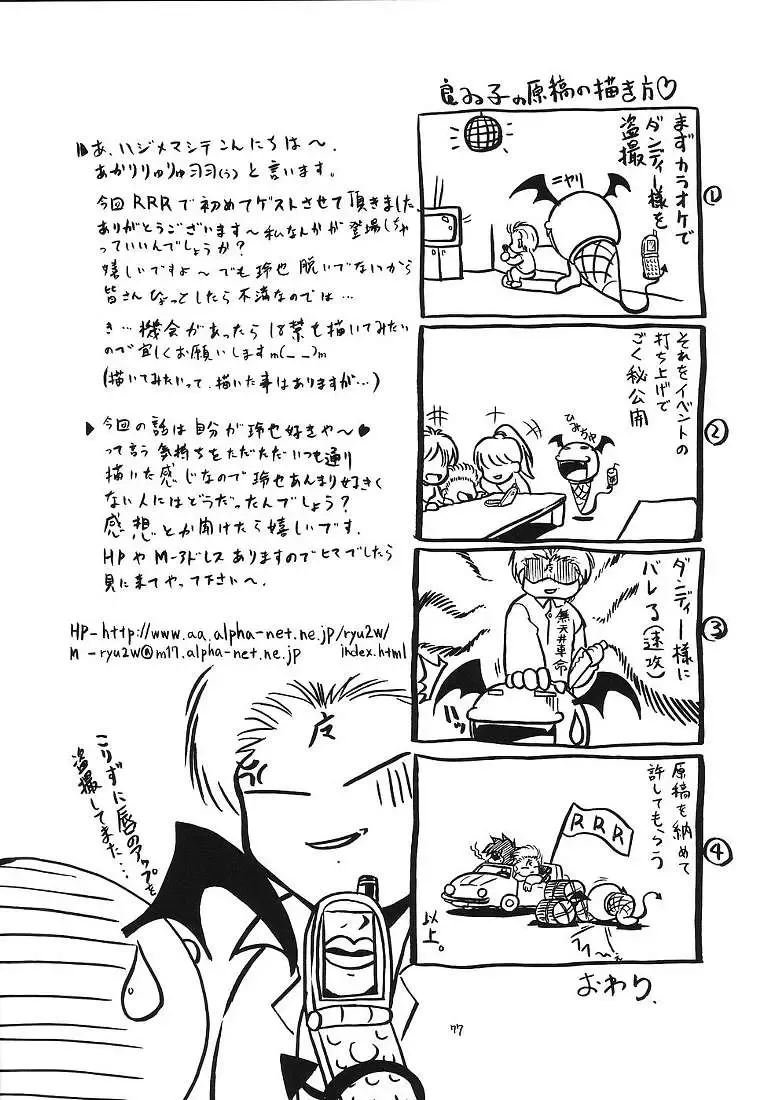 良ゐ子の原稿の描き方♡
①
まずカラオケで
ダンディー様を
盗撮
ニヤリ
②
それをイベントの
打ち上げで
ごく秘公開
③
ダンディー様に
バレる(速攻)
無天井革命
④
原稿を納めて
許してもらう
RRR
以上。
おわり.
あ、ハジメマシテこんにちは〜
と言います。
今回RRRで初めてゲストさせて頂きました
ありがとうございます〜私なんかが登場しちゃ
っていいんでしょうか?
嬉しいですよ〜でも玲也脱いでないから
皆さんひょっとしたら不満なのでは…
き…機会があったら18禁も描いてみたい
ので宜しくお願いしますm(_ _)m
(描いてみたいって、描いた事はありますが…)
▶今回の話は自分が玲也好きや〜♥
って言う気持ちをただただいつも通り
描いた感じなので玲也あんまり好きく
ない人にはどうだったんでしょう?
感想とか聞けたら嬉しいです。
HPやM-アドレスありますのでヒマでしたら
見に来てやって下さい〜。
HP-http://www.aa.alpha-net.ne.jp/ryu2w/
index.html
M -ryu2w@m17.alpha-net.ne.jp
こりずに唇のアップを
盗撮してまた…
77